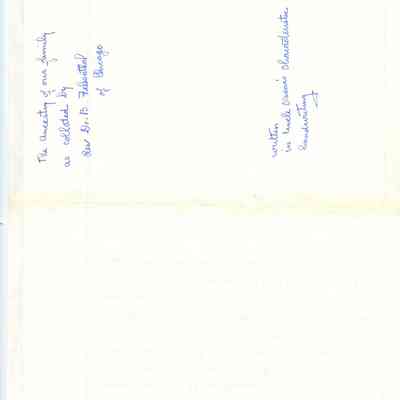 The Ancestry of our family
as collated by
Rev Dr. B. Felsenthal
of Chicago
written
in Uncle Oscar's characteristic
handwriting